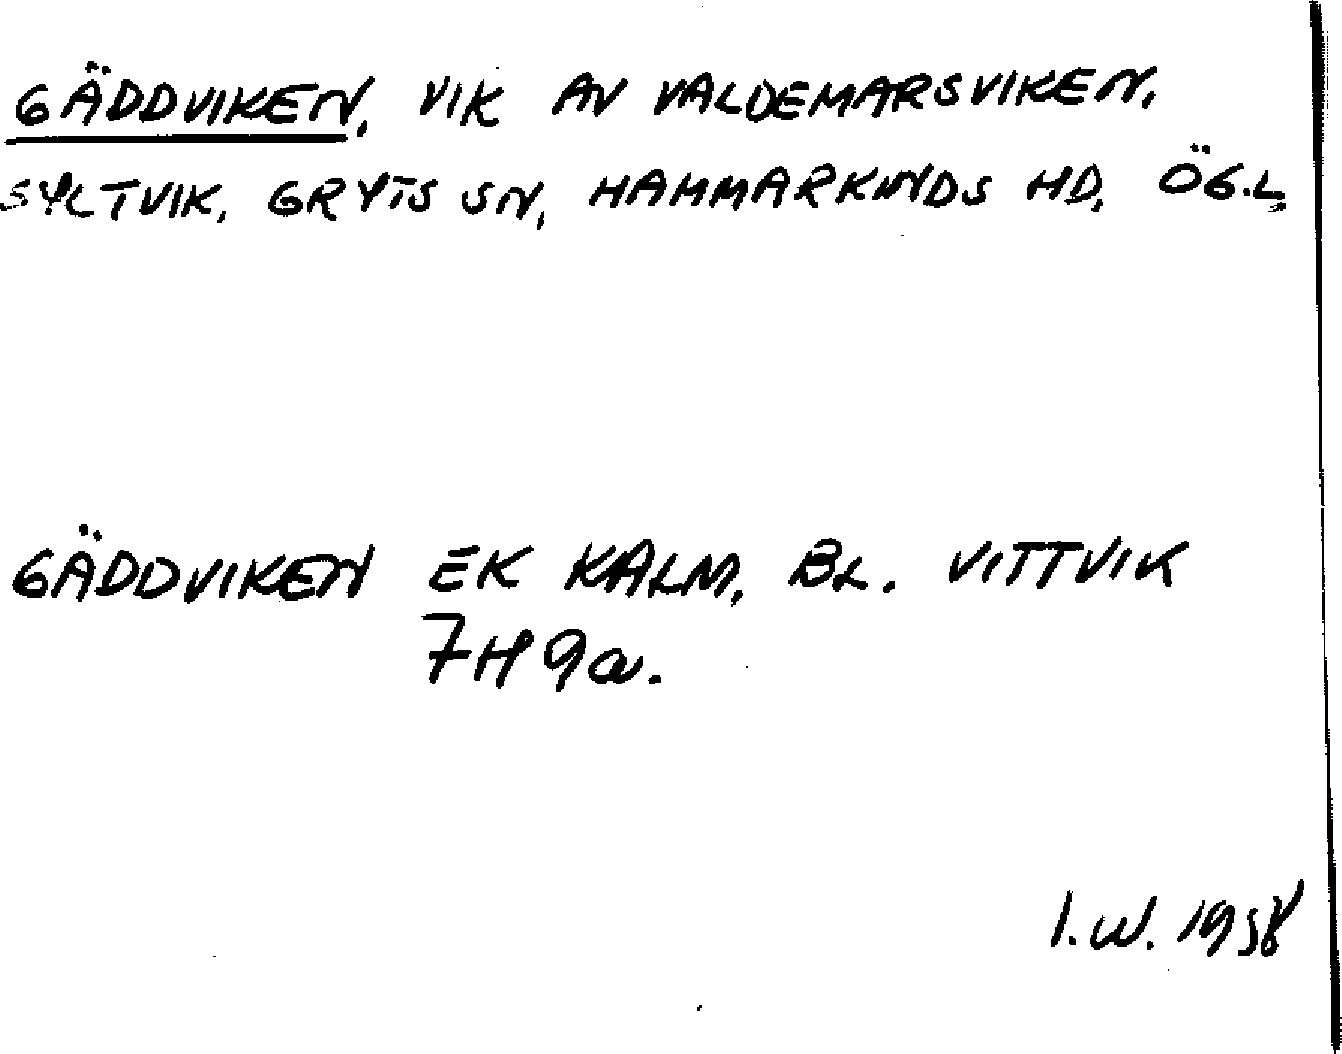 GÄDDVIKEN, VIK AV VALDEMARSVIKEN,
SYLTVIK, GRYTS SN, HAMMARKINDS HD, ÖG.L.
GÄDDVIKEN EK KALM, BL. VITTVIK
7H9a.
I.W. 1958